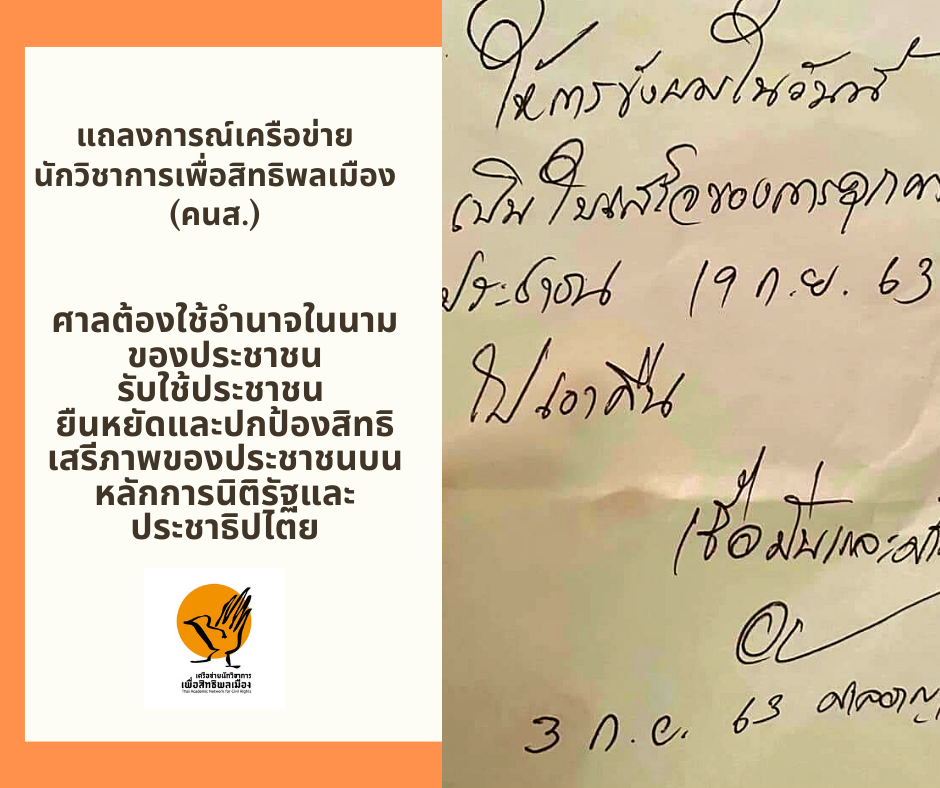 แถลงการณ์เครือข่าย
นักวิชาการเพื่อสิทธิพลเมือง
(คนส.)
ศาลต้องใช้อำนาจในนาม
ของประชาชน
รับใช้ประชาชน
ยืนหยัดและปกป้องสิทธิ
เสรีภาพของประชาชนบน
หลักการนิติรัฐและ
ประชาธิปไตย
เครือข่ายนักวิชาการ
เพื่อสิทธิพลเมือง
Thai Academic Network for Civil Rights
ให้การขังผมในวันนี้
เป็นใบเสร็จของการคุกคาม
ประชาชน 19 ก.ย. 63
ไปเอาคืน
เชื่อมั่นและ
3 ก.ย. 63 ศาลอาญา